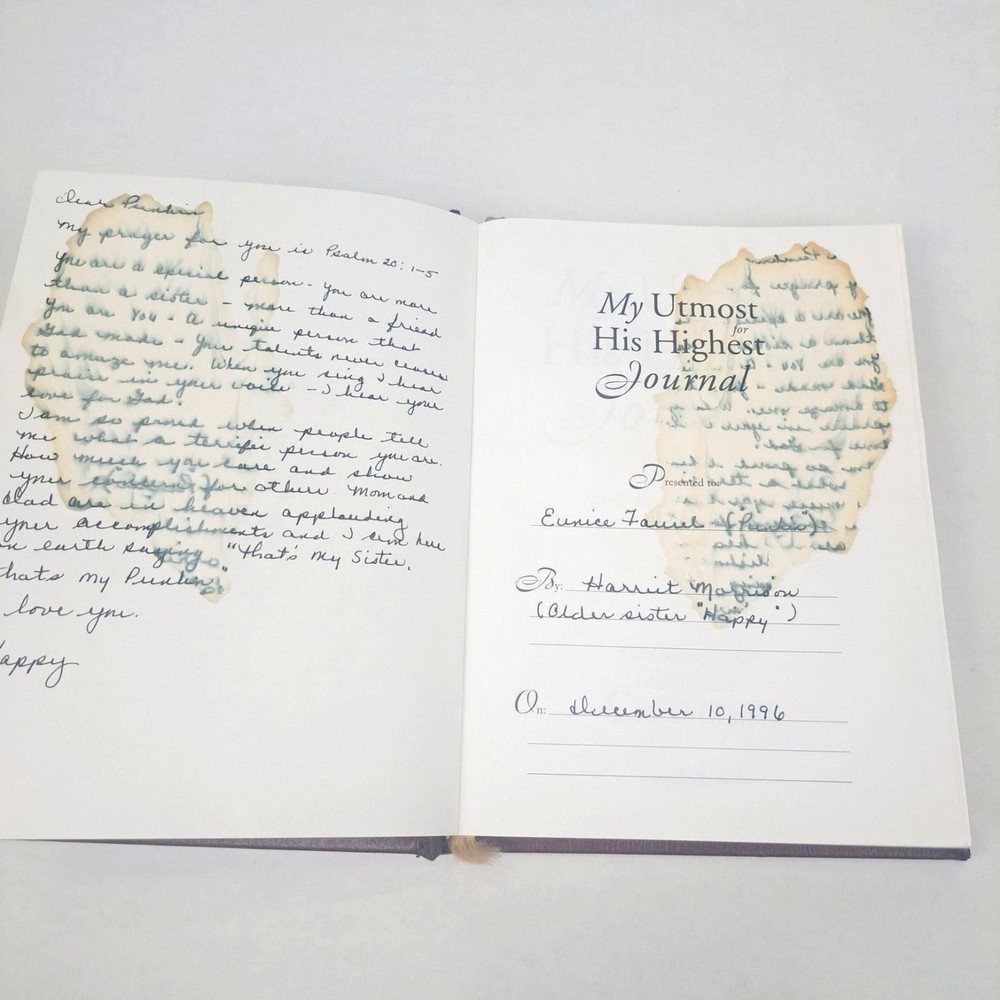 Dear Punkin
My prayer for you is Psalm 20:1-5
You are a special person - you are more
than a sister - more than a friend
You are You - A unique person that
God made - Your talents never cease
to amaze me. When you sing I hear
praise in your voice - I hear your
love for God.
I am so proud when people tell
me what a terrific person you are.
How much you care and show
your concern for others. Mom and
Dad are in heaven applauding
your accomplishments and I am here
on earth saying "That's my Sister,
that's my Punkin."
I love you.
Happy
My Utmost
for
His Highest
Journal
Presented to:
Eunice (Punkin)
By: Harriet Morrison
(Older sister "Happy")
On: December 10, 1996